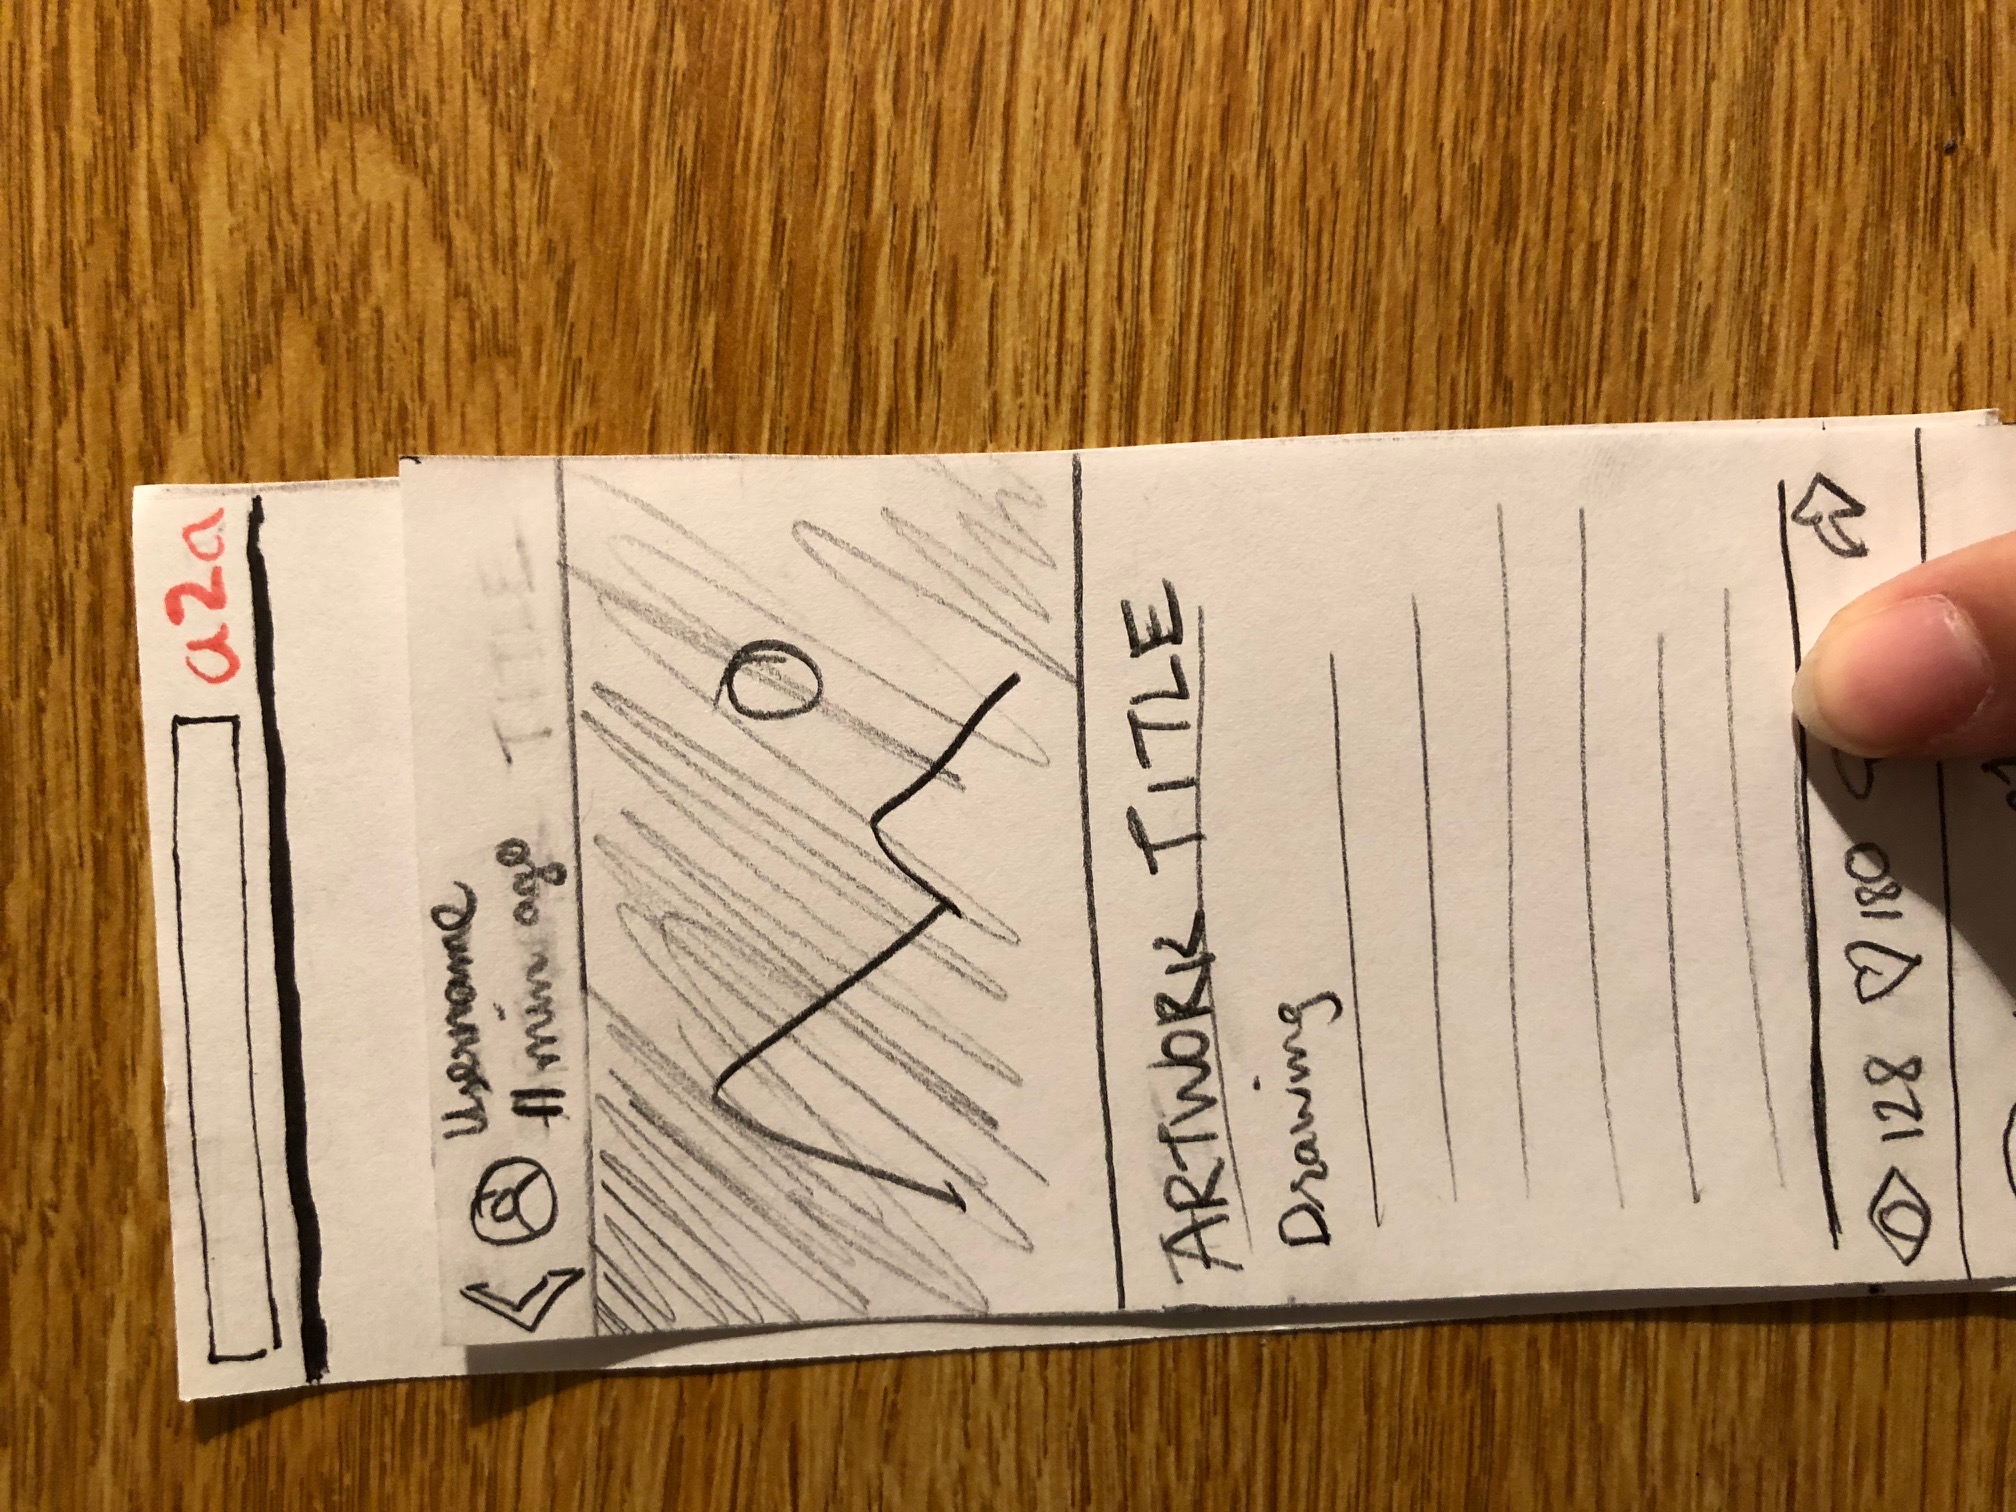 a2a
Username
11 min ago
TITLE
ARTWORK TITLE
Drawing
128 180